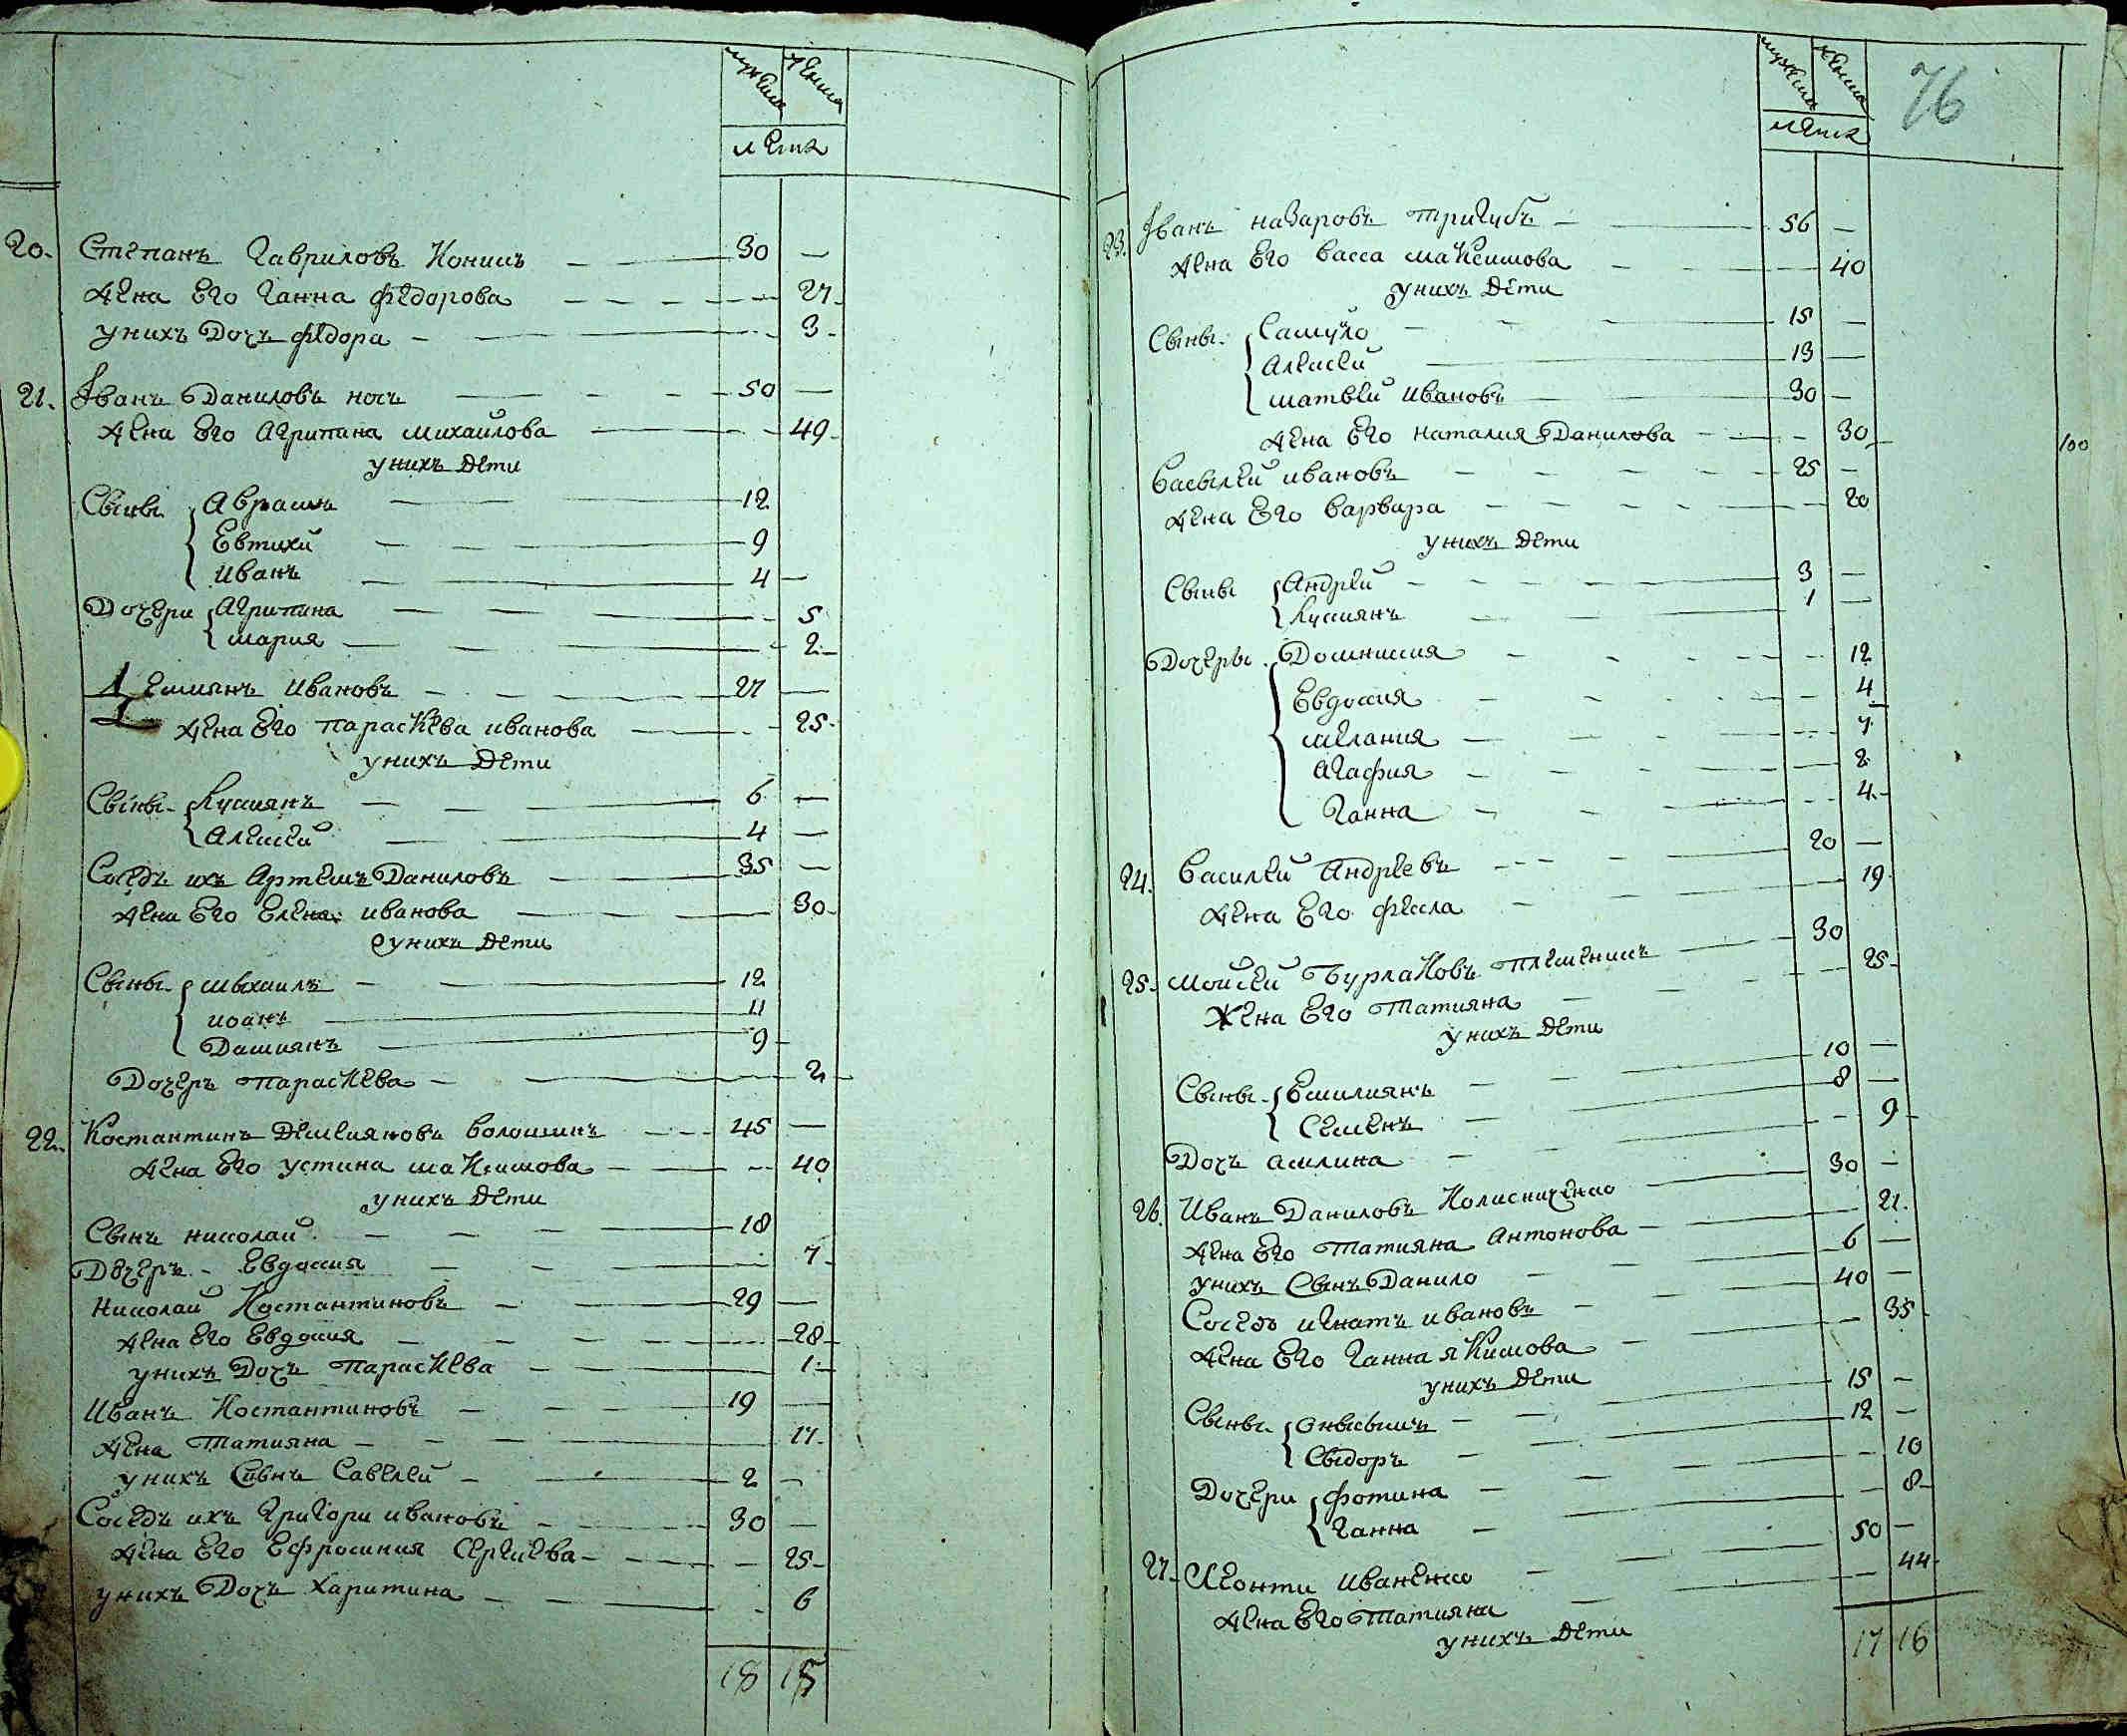 мужеска женска
лета
20. Степанъ Гавриловъ Коникъ 30 —
жена Его Ганна Федорова 27
унихъ Дочъ Федора 3
21. Іванъ Даниловъ носъ 50 —
жена Его Агрипина Михаилова 49
унихъ Дети
Сыны Аврамъ 12
Евтихи 9
Иванъ 4 —
Дочери Агрипина 5
Мария 2
Демиянъ Ивановъ 27 —
жена Его Параскева иванова 25
унихъ Дети
Сыны Кусмянъ 6 —
Алексей 4 —
Соседъ ихъ Артемъ Даниловъ 35 —
жена Его Елена иванова 30
унихъ Дети
Сыны Мыхаилъ 12
иоанъ 11
Дамиянъ 9
Дочеръ Параскева 2
22. Костантинъ Демеияновъ Волошинъ 45 —
жена Его Устина Максимова 40
унихъ Дети
Сынъ николай 18
Дочеръ Евдокия 7
николай Костантиновъ 29 —
жена Его Евдокия 28
унихъ Дочъ Параскева 1
Иванъ Костантиновъ 19 —
жена Татияна 17
унихъ Сынъ Савелей 2 —
Соседъ ихъ Григори ивановъ 30 —
жена Его Ефросиния Сергиева 25
унихъ Дочъ Харитина 6
18 15
мужеска женска
76
лета
23. Іванъ назаровъ Тригубъ 56 —
жена Его васса Максимова 40
унихъ Дети
Сыны Самуло 15 —
Алексей 13 —
Матвей Ивановъ 30 —
жена Его Наталия Данилова 30
100
Васылей ивановъ 25 —
жена Его варвара 20
унихъ Дети
Сыны Андрей 3 —
Кусмянъ 1 —
Дочеры Домникия 12
Евдокия 4
Мелания 7
Агафия 2
Ганна 4
24. Василей Андреевъ 20 —
жена Его Фекла 19
25. Мойсей Бурлаковъ племеникъ 30
Жена Его Татияна 25
унихъ Дети
Сыны Емилиянъ 10 —
Семенъ 8 —
Дочъ Акилина 9
26. Иванъ Даниловъ Колисниченко 30 —
жена Его Татияна Антонова 21
унихъ Сынъ Данило 6 —
Соседъ игнатъ ивановъ 40 —
жена Его Ганна якимова 35
унихъ Дети
Сыны Онысымъ 15 —
Сыдоръ 12 —
Дочери Фотина 10
Ганна 8
27. Леонти Иваненко 50 —
жена Его Татияна 44
унихъ Дети
17 16